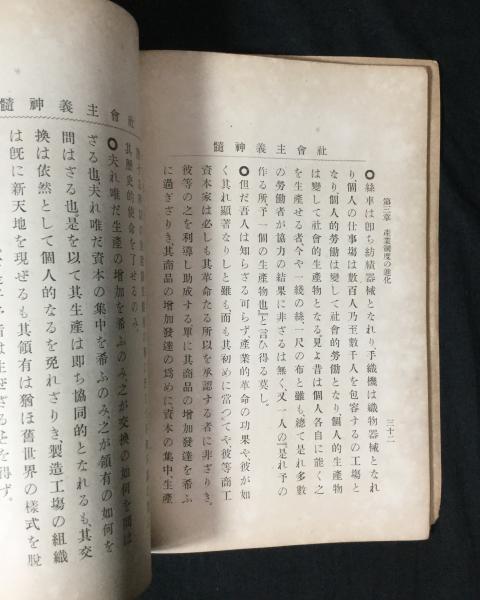 社會主義神髓
第三章 產業制度の進化
三十二
◯絲車は卽ち紡績器械となれり、手織機は織物器械となれ
り個人の仕事場は數百人乃至數千人を包容するの工場と
なり個人的勞働は變して社會的勞働となり、個人的生產物
は變して社會的生產物となる見よ昔は個人各自に能く之
を生產せる者、今や一綫の絲一尺の布と雖も、總て是れ多數
の勞働者が協力の結果に非ざるは無く、又一人の『是れ予の
作る所、予一個の生產物也』と言ひ得る莫し。
◯但だ吾人は知らざる可らず、產業的革命の功果や、彼が如
く其れ顯著なりしと雖も、而も其初めに當つてや、彼等商工
資本家は必しも其革命たる所以を承認する者に非ざりき。
彼等の之を利導し助成する、單に其商品の增加發達を希ふ
に過ぎざりき、其商品の增加發達の爲めに資本の集中、生產
社會主義神髓
其歷史的使命を了せるのみ。
◯夫れ唯だ生產の增加を希ふのみ、之が交換の如何を問は
ざる也、夫れ唯だ資本の集中を希ふのみ、之が領有の如何を
問はざる也、是を以て其生產は卽ち協同的となれるも、其交
換は依然として個人的なるを免れざりき、製造工場の組織
は旣に新天地を現ぜるも其領有は猶ほ舊世界の樣式を脫